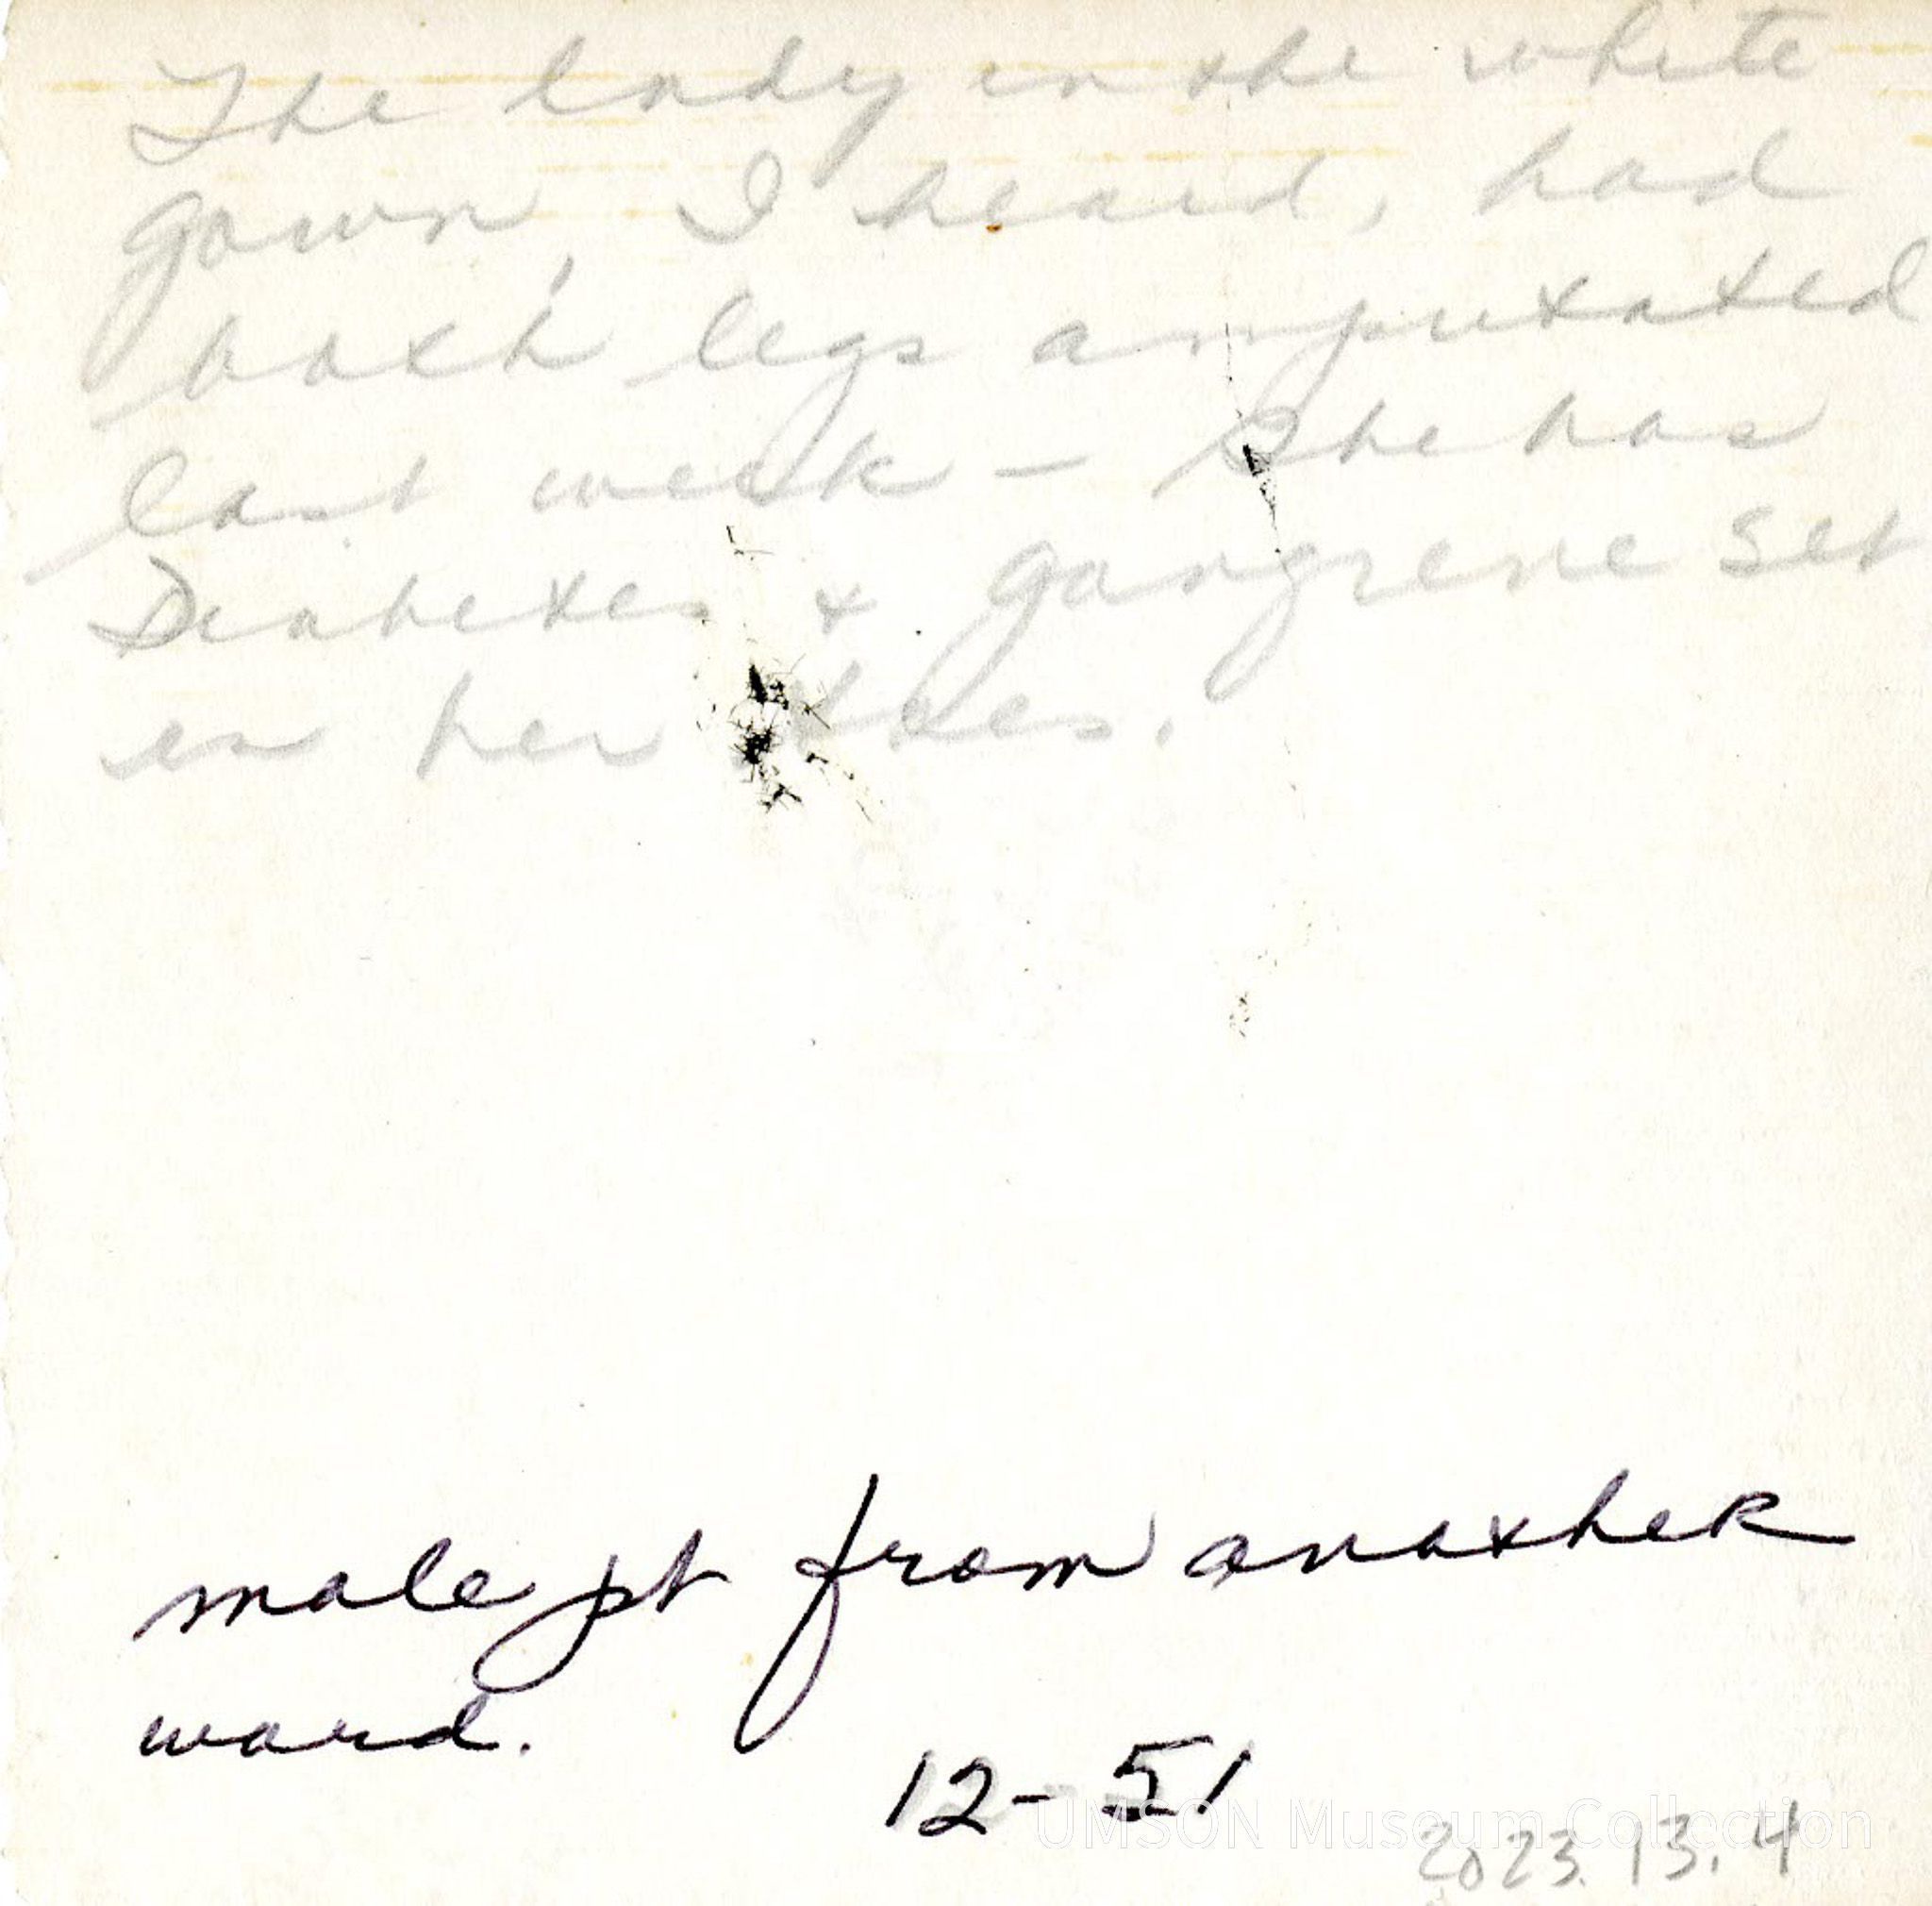 The lady in the white
gown, I heard, had
both legs amputated
last week - She has
Diabetes & gangrene set
in her toes.
male pt from another
ward.
12-51
UMSON Museum Collection
2023.13.4